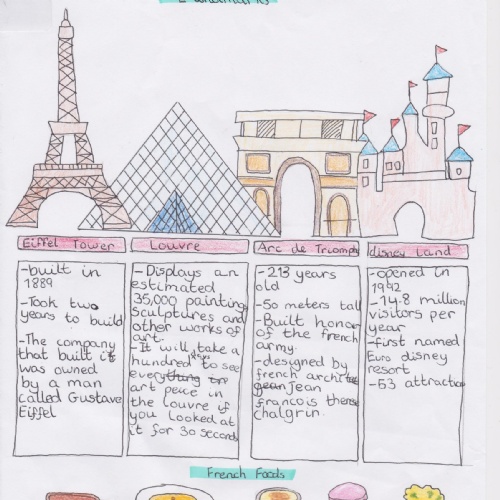 Landmarks
Eiffel Tower
Louvre
Arc de Triomph
disney Land
-built in
1889
-Took two
years to build
-The company
that built it
was owned
by a man
called Gustave
Eiffel
-Displays an
estimated
35,000 painting
sculptures and
other works of
art.
-It will take a
hundred days to see
everything the
art peice in
the louvre if
you looked at
it for 30 seconds
-213 years
old
-50 meters tall
-Built honor
of the french
army.
-designed by
french archi
Jean
francois therse
chalgrin.
-opened in
1992
-14.8 million
visitors per
year
-first named
Euro disney
resort
-53 attraction
French Foods